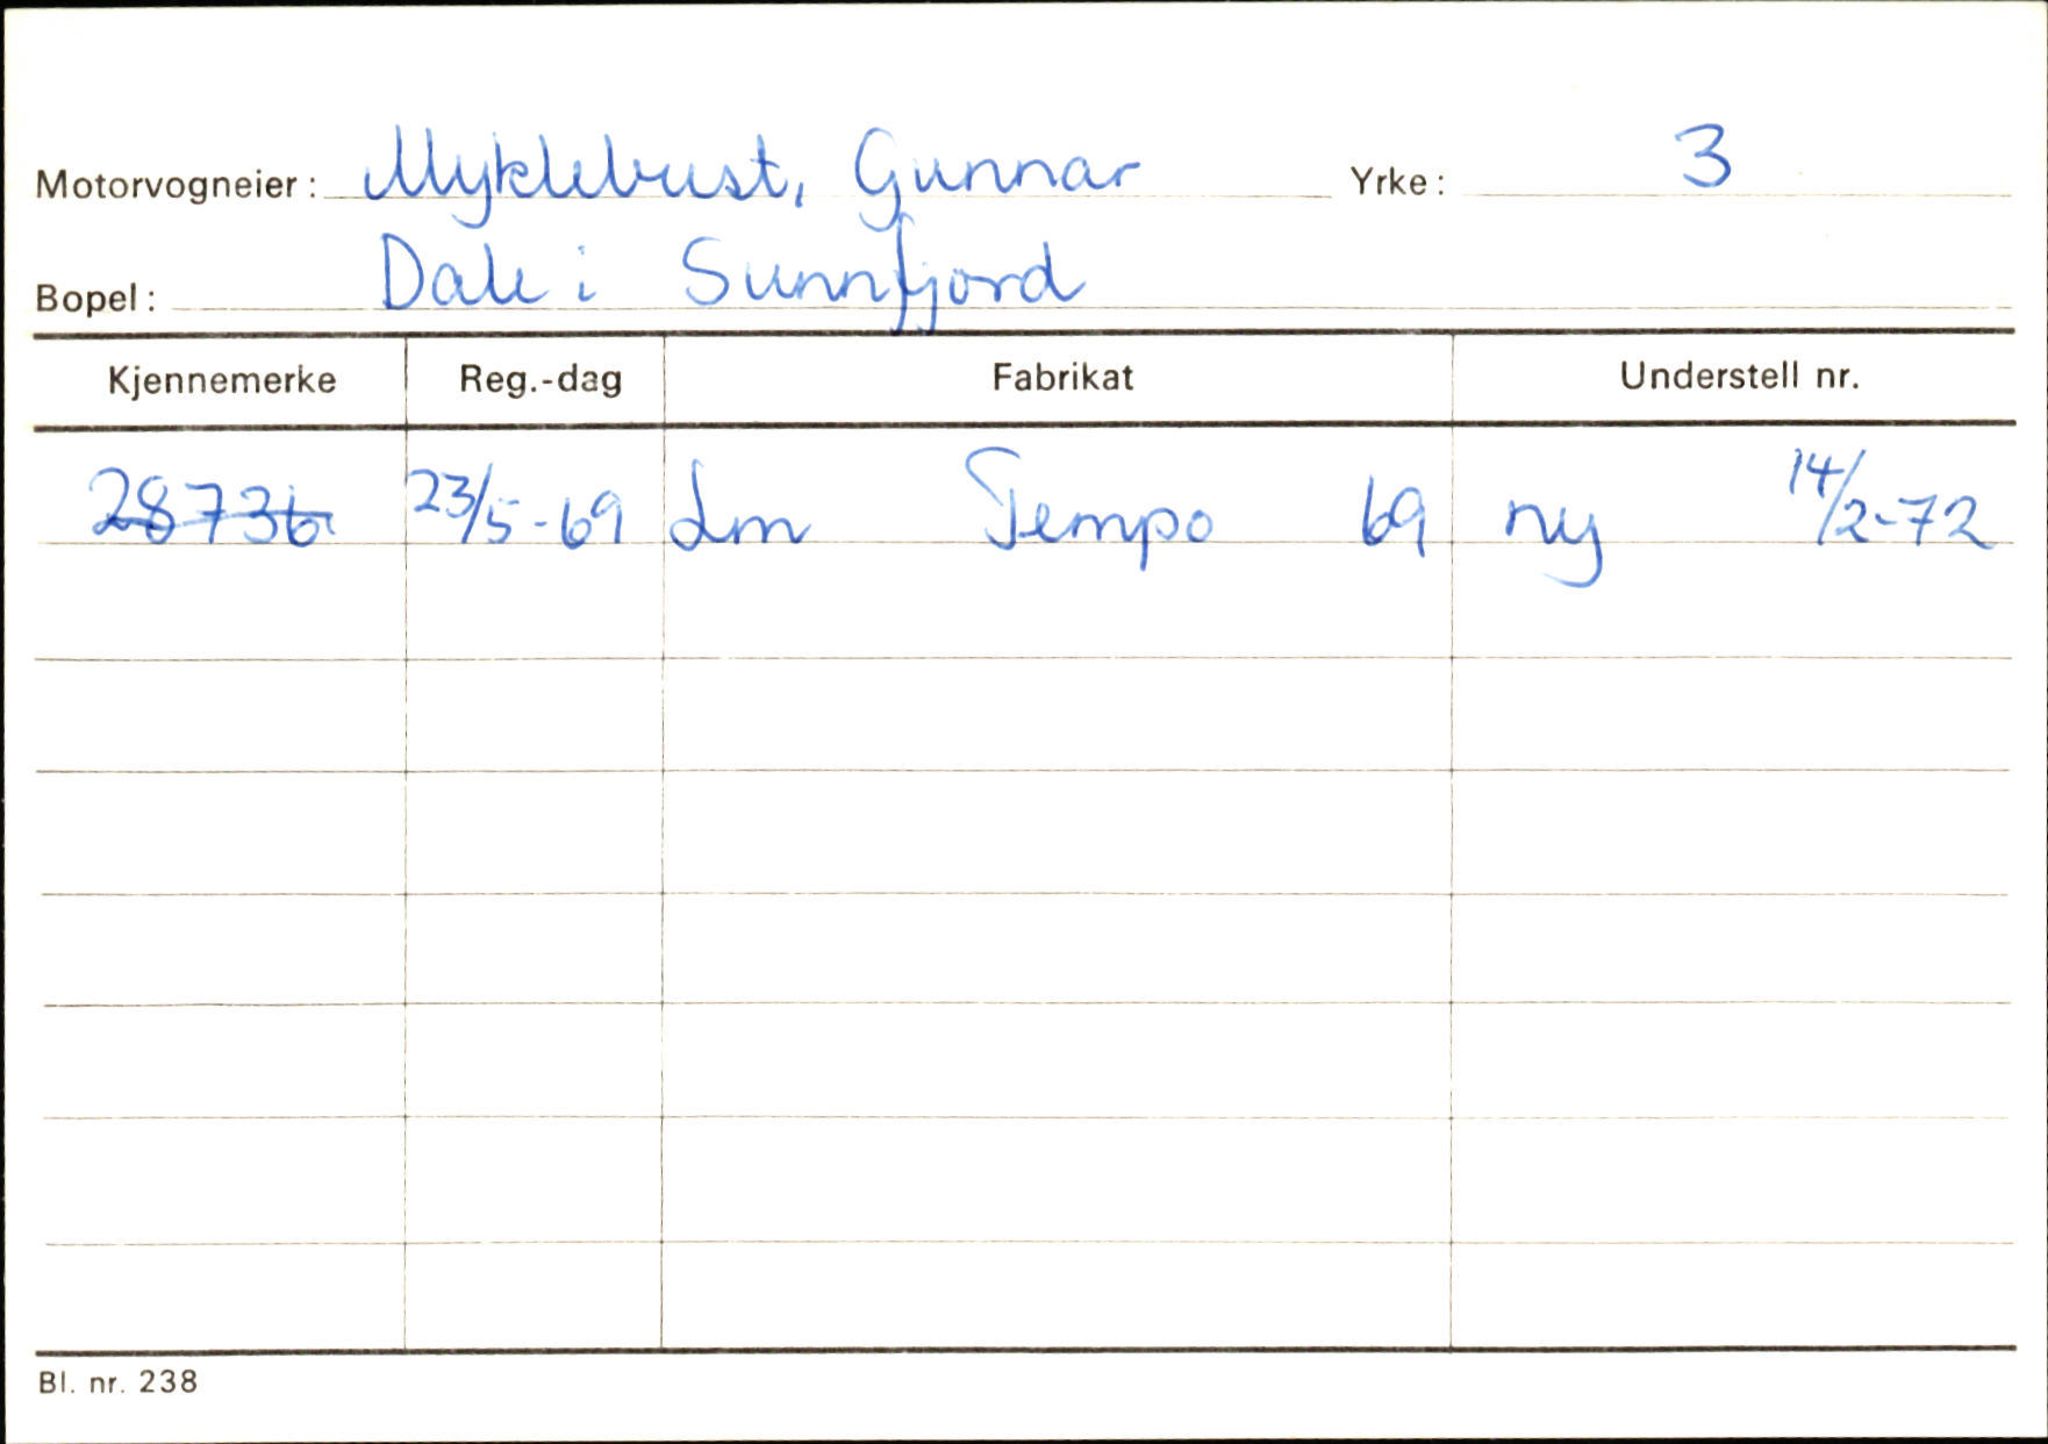 Motorvogneier: Myklebust, Gunnar Yrke: 3
Bopel: Dale i Sunnfjord
Kjennemerke Reg.-dag Fabrikat Understell nr.
28736 23/5-69 Lm Tempo 69 ny 14/2-72
Bl. nr. 238